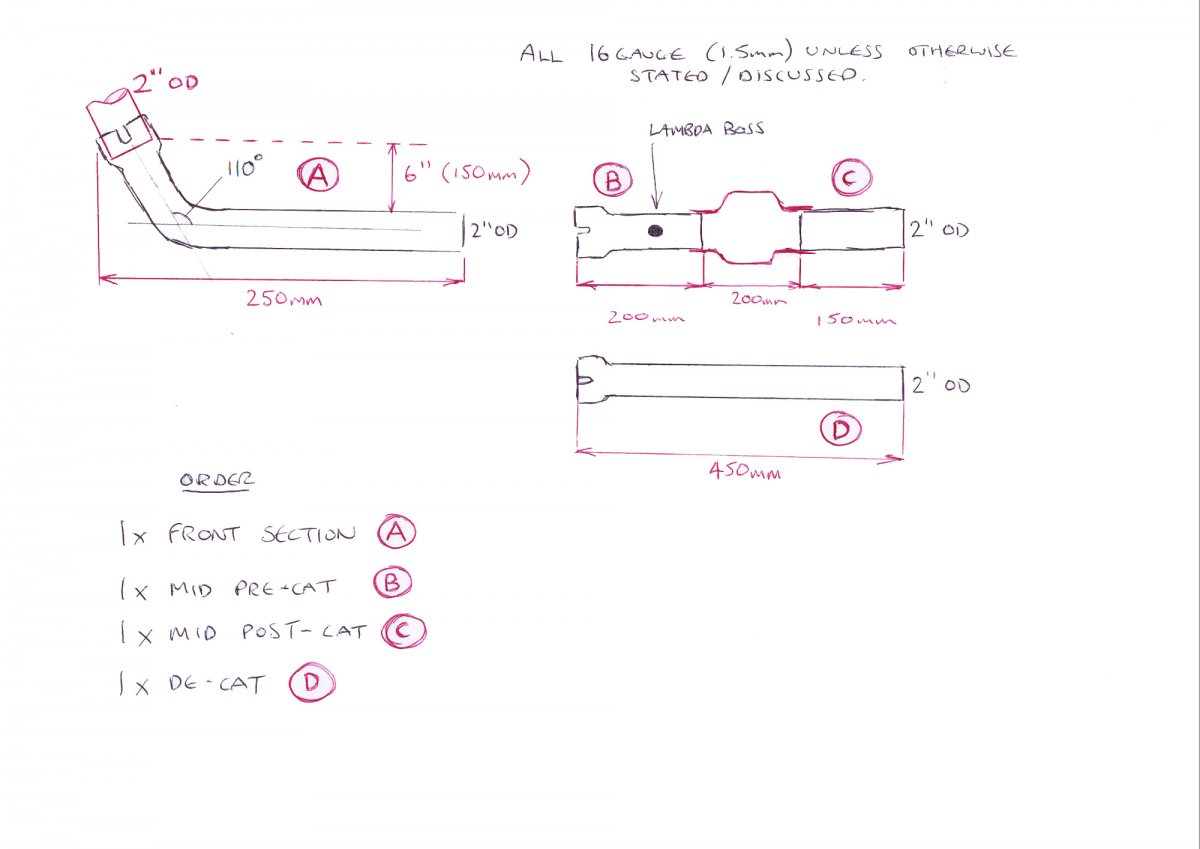 ALL 16 GAUGE (1.5mm) UNLESS OTHERWISE
STATED / DISCUSSED.
2" OD
110°
A
6" (150mm)
2" OD
250mm
LAMBDA BOSS
B
C
2" OD
200mm
200mm
150mm
2" OD
D
450mm
ORDER
1x FRONT SECTION A
1x MID PRE-CAT B
1x MID POST-CAT C
1x DE-CAT D